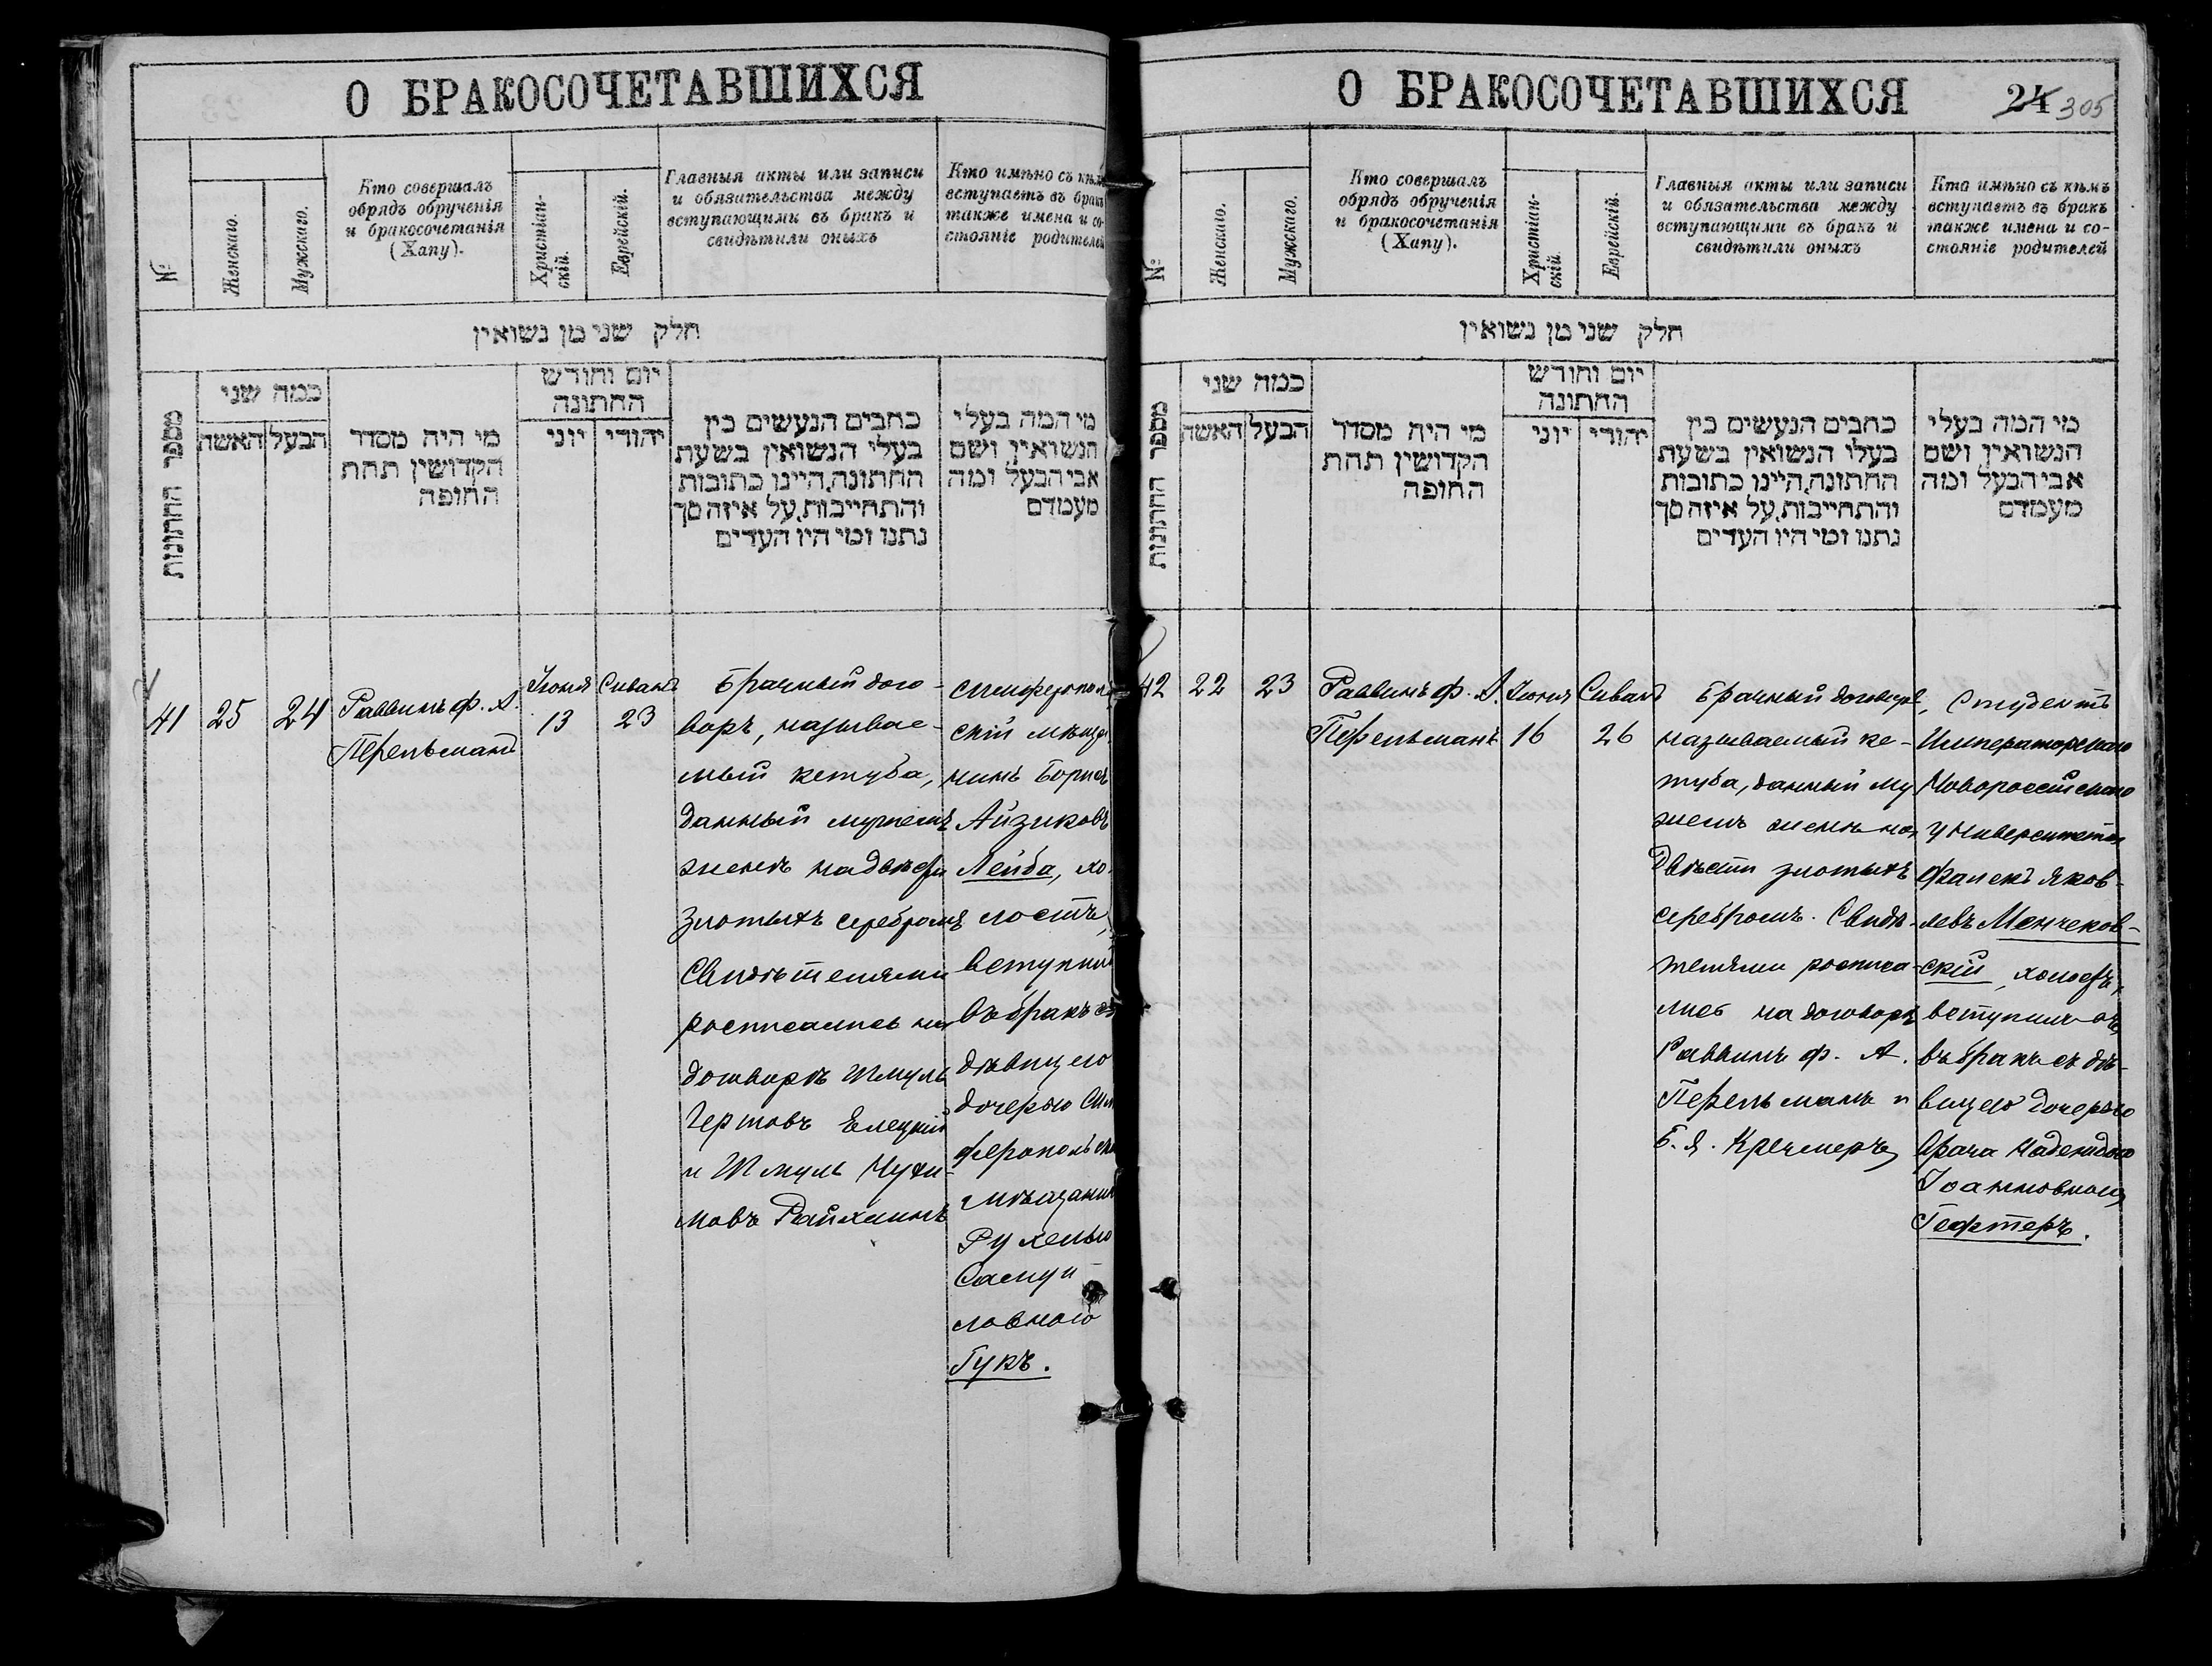 О БРАКОСОЧЕТАВШИХСЯ
№
Женскаго.
Мужскаго.
Кто совершалъ
обрядъ обрученія
и бракосочетанія
(Хапу).
Христіан-
скій.
Еврейскій.
Главныя акты или записи
и обязательства между
вступающими въ бракъ и
свидѣтили оныхъ
Кто имѣно съ кѣм
вступаетъ въ бракъ
также имена и со-
стояніе родителей
חלק שני מן נשואין
מספר החתונות
כמה שני
האשה
הבעל
מי היה מסדר
הקדושין תחת
החופה
יום וחודש
החתונה
יוני
יהודי
כתבים הנעשים בין
בעלי הנשואין בשעת
החתונה, היינו כתובות
והתחייבות, על איזה סך
נתנו ומי היו העדים
מי המה בעלי
הנשואין ושם
אבי הבעל ומה
מעמדם
41
25
24
Раввинъ ф. А.
Перельманъ
Іюня
13
Сиванъ
23
Брачный дого-
воръ, называе-
мый кетуба,
данный мужемъ
женѣ на двѣсти
злотыхъ серебромъ
Свидѣтелями
росписались на
договорѣ Шмуль
Гертовъ Елецкій
и Шмуль Нухи-
мовъ Райхлинъ
Симферополь
скій мѣща
нинъ Борисъ
Айзиковъ
Лейба, хо
лостъ,
вступилъ
въ бракъ съ
дѣвицею
дочерью Сим
феропольск
мѣщанин
Рухелью
Самуи-
ловною
Гукъ.
О БРАКОСОЧЕТАВШИХСЯ
24 305
№
Женскаго.
Мужскаго.
Кто совершалъ
обрядъ обрученія
и бракосочетанія
(Хапу).
Христіан-
скій.
Еврейскій.
Главныя акты или записи
и обязательства между
вступающими въ бракъ и
свидѣтили оныхъ
Кто имѣно съ кѣмъ
вступаетъ въ бракъ
также имена и со-
стояніе родителей
חלק שני מן נשואין
מספר החתונות
כמה שני
האשה
הבעל
מי היה מסדר
הקדושין תחת
החופה
יום וחודש
החתונה
יוני
יהודי
כתבים הנעשים בין
בעלו הנשואין בשעת
החתונה, היינו כתובות
והתחייבות, על איזה סך
נתנו ומי היו העדים
מי המה בעלי
הנשואין ושם
אבי הבעל ומה
מעמדם
42
22
23
Раввинъ ф. А.
Перельманъ
Іюня
16
Сиванъ
26
Брачный договоръ,
называемый ке-
туба, данный му
жемъ женѣ на
двѣсти злотыхъ
серебромъ. Свидѣ-
телями росписа-
лись на договорѣ
Раввинъ ф. А.
Перельманъ и
Б. Я. Кречмеръ
Студентъ
Императорскаго
Новороссійскаго
Университета
Фалекъ Яков-
левъ Менчеков-
скій, холостъ,
вступилъ
въ бракъ съ дѣ-
вицею дочерью
врача Надеждою
Іоанновною
Гефтеръ.